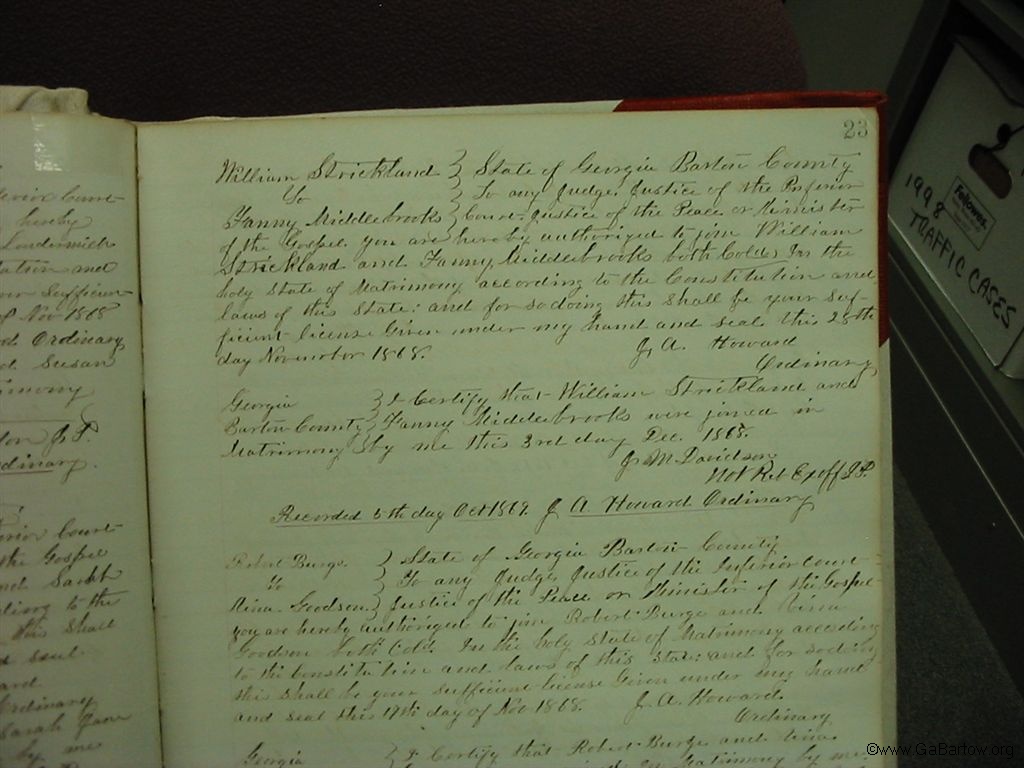 23
William Strickland } State of Georgia Bartow County
To } To any Judge, Justice of the Inferior
Fanny Middlebrooks } Court, Justice of the Peace or Minister
of the Gospel, you are hereby authorized to join William
Strickland and Fanny Middlebrooks both Cold. In the
holy State of Matrimony according to the Constitution and
laws of this State: and for so doing this shall be your suf-
ficient license Given under my hand and seal this 28th
day November 1868. J. A. Howard
Ordinary
Georgia } I Certify that William Strickland and
Bartow County } Fanny Middlebrooks were joined in
Matrimony by me this 3rd day Dec. 1868.
J. M. Davidson
Not Pub Exoff J.P.
Recorded 5th day Oct 1869. J. A. Howard Ordinary
Robert Burge } State of Georgia Bartow County
To } To any Judge, Justice of the Inferior Court
Goodson } Justice of the Peace or Minister of the Gospel
you are hereby authorized to join Robert Burge and
Goodson both Cold. In the holy State of Matrimony according
to the Constitution and laws of this State: and for so doing
this shall be your sufficient license Given under my hand
and seal this 19th day of Nov 1868. J. A. Howard.
Ordinary
Georgia } I Certify that Robert Burge and
Matrimony by me
erior Court
hereby
and
our Sufficien
of Nov 1868
Ordinary
Susan
imony
J.P.
dinary.
erior Court
the Gospel
nd
ding to the
this shall
seal.
ard.
Ordinary
Sarah Jane
by me
1998
TRAFFIC CASES
Fellowes
©www.GaBartow.org